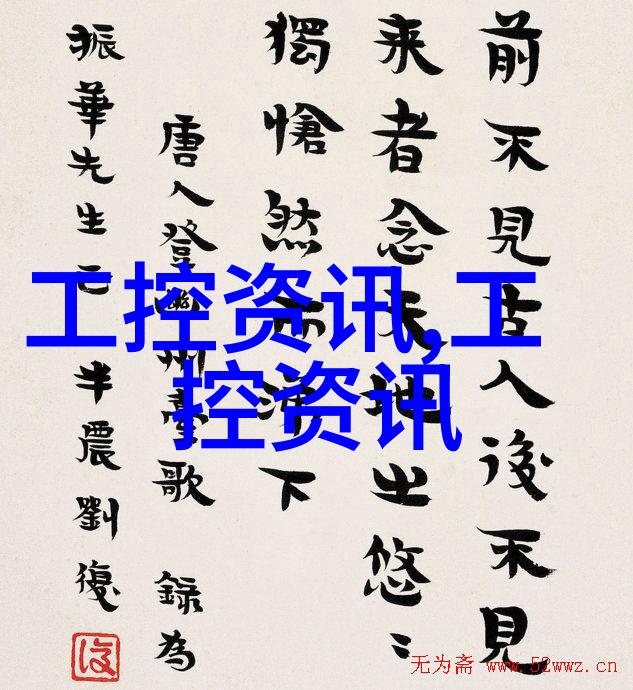 前不見古人後不見
来者念天地之悠〻
獨愴然而涕下
唐人登幽州臺歌 錄為
振華先生正 半農劉復
復
工控资讯,工
控资讯
无为斋 www.52wwz.cn